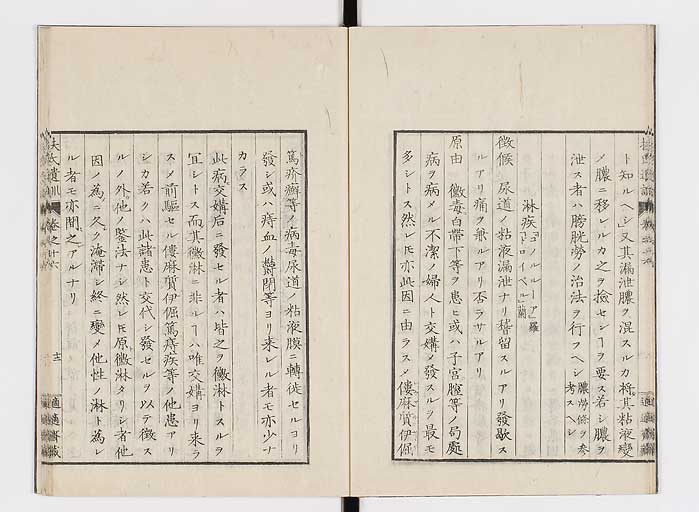 ト知ルヘシ又其漏泄膿ヲ混スルカ将其粘液変
ノ膿ニ移レルカ之ヲ撿センヿヲ要ス若シ膿ヲ
泄ス者ハ膀胱労ノ治法ヲ行フヘシ 膿労條ヲ参考スヘシ
淋疾 ゴノルルーア羅 ドロイペル蘭
徴候 尿道ノ粘液漏泄ナリ稽留スルアリ發歇ス
ルアリ痛ヲ兼ルアリ否ラサルアリ
原由 黴毒白帯下等ヲ患ヒ或ハ子宮膣等ノ局處
病ヲ病メル不潔ノ婦人ト交媾メ發スルヲ最モ
多シトス然レ𪜈亦此因ニ由ラスメ僂麻質伊倔
篤疥癬等ノ病毒尿道ノ粘液膜ニ轉徙セルヨリ
發シ或ハ痔血ノ鬱閉等ヨリ来レル者モ亦少ナ
カラス
此病交媾后ニ發セル者ハ皆之ヲ黴淋トスルヲ
冝シトス而其黴淋ニ非ルヿハ唯交媾ヨリ来ラ
スメ前駆セル僂麻質伊倔篤痔疾等ノ他患アリ
シカ若クハ此諸患ト交代シ發セルヲ以テ徴ス
ルノ外他ノ鑒法ナシ然レ𪜈原黴淋タリシ者他
因ノ為ニ久ク淹滞シ終ニ變メ他性ノ淋ト為レ
ル者モ亦間之アルナリ
扶氏遺訓 巻之十六 十二 適適斎蔵